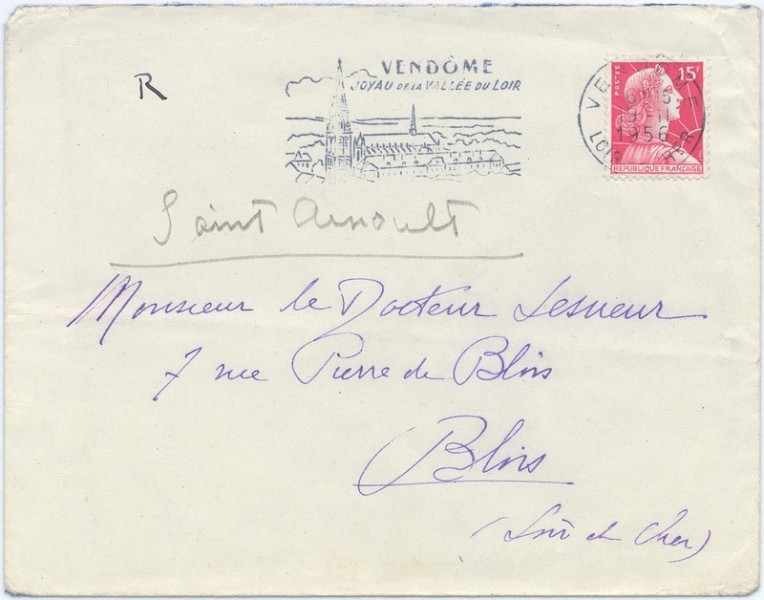 R
VENDÔME
JOYAU DE LA VALLÉE DU LOIR
POSTES
15F
1956
LOIR
REPUBLIQUE FRANÇAISE
Saint Arnoult
Monsieur le Docteur Lesueur
7 rue Pierre de Blois
Blois
(Loir et Cher)